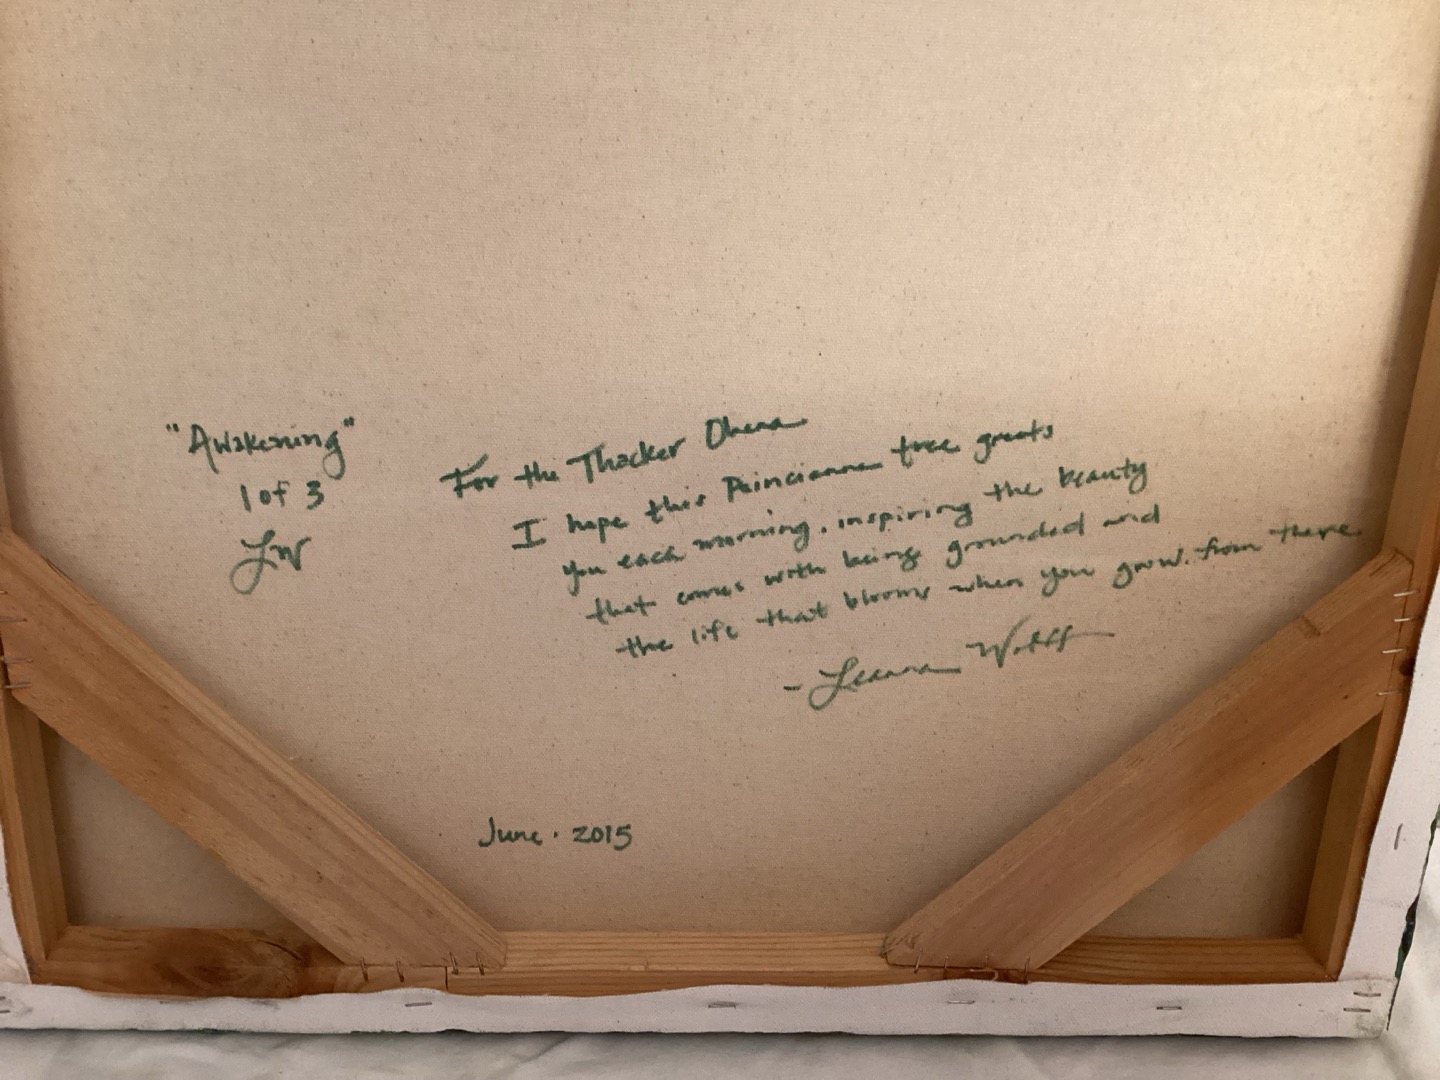 "Awakening"
1 of 3
LW
For the Thacker Ohana
I hope this Poincianna tree greets
you each morning, inspiring the beauty
that comes with being grounded and
the life that blooms when you grow from there.
- Leanna Wolff
June · 2015